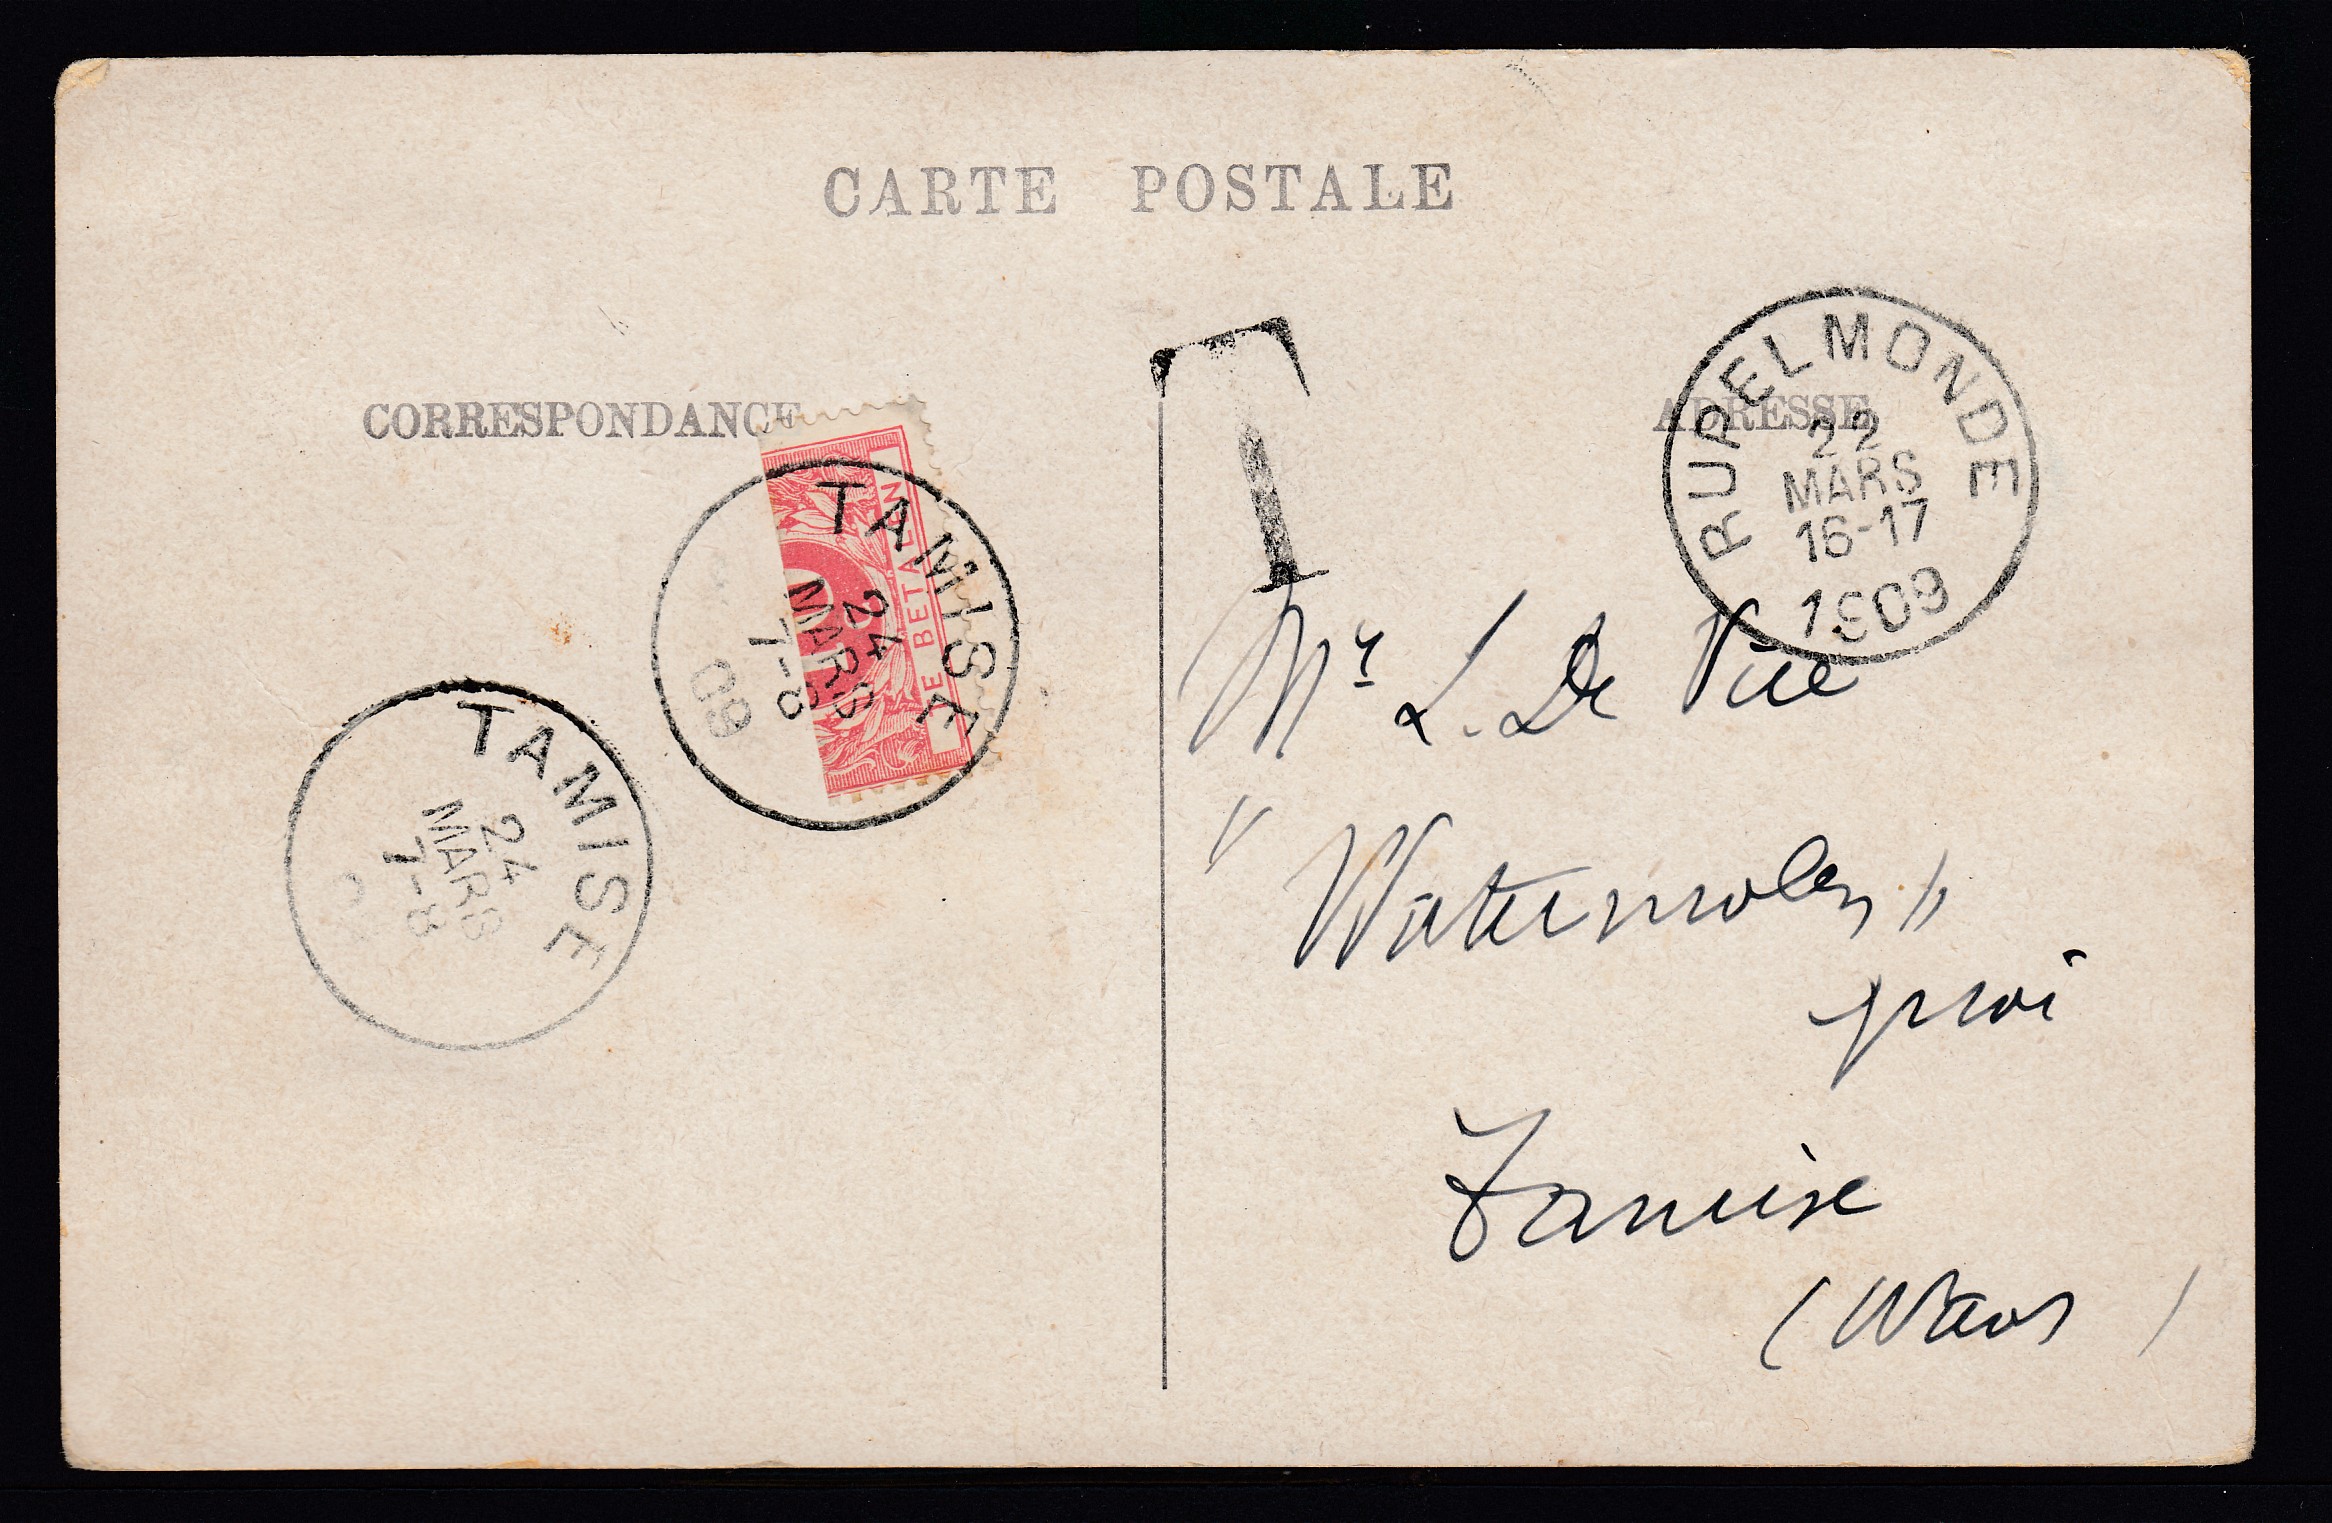 CARTE POSTALE
CORRESPONDANCE
ADRESSE
RUPELMONDE
22
MARS
16-17
1909
T
TE BETALEN
TAMISE
24
MARS
7-8
09
TAMISE
24
MARS
7-8
Mr L. De
"Watermolen"
Tamise
(Waes)